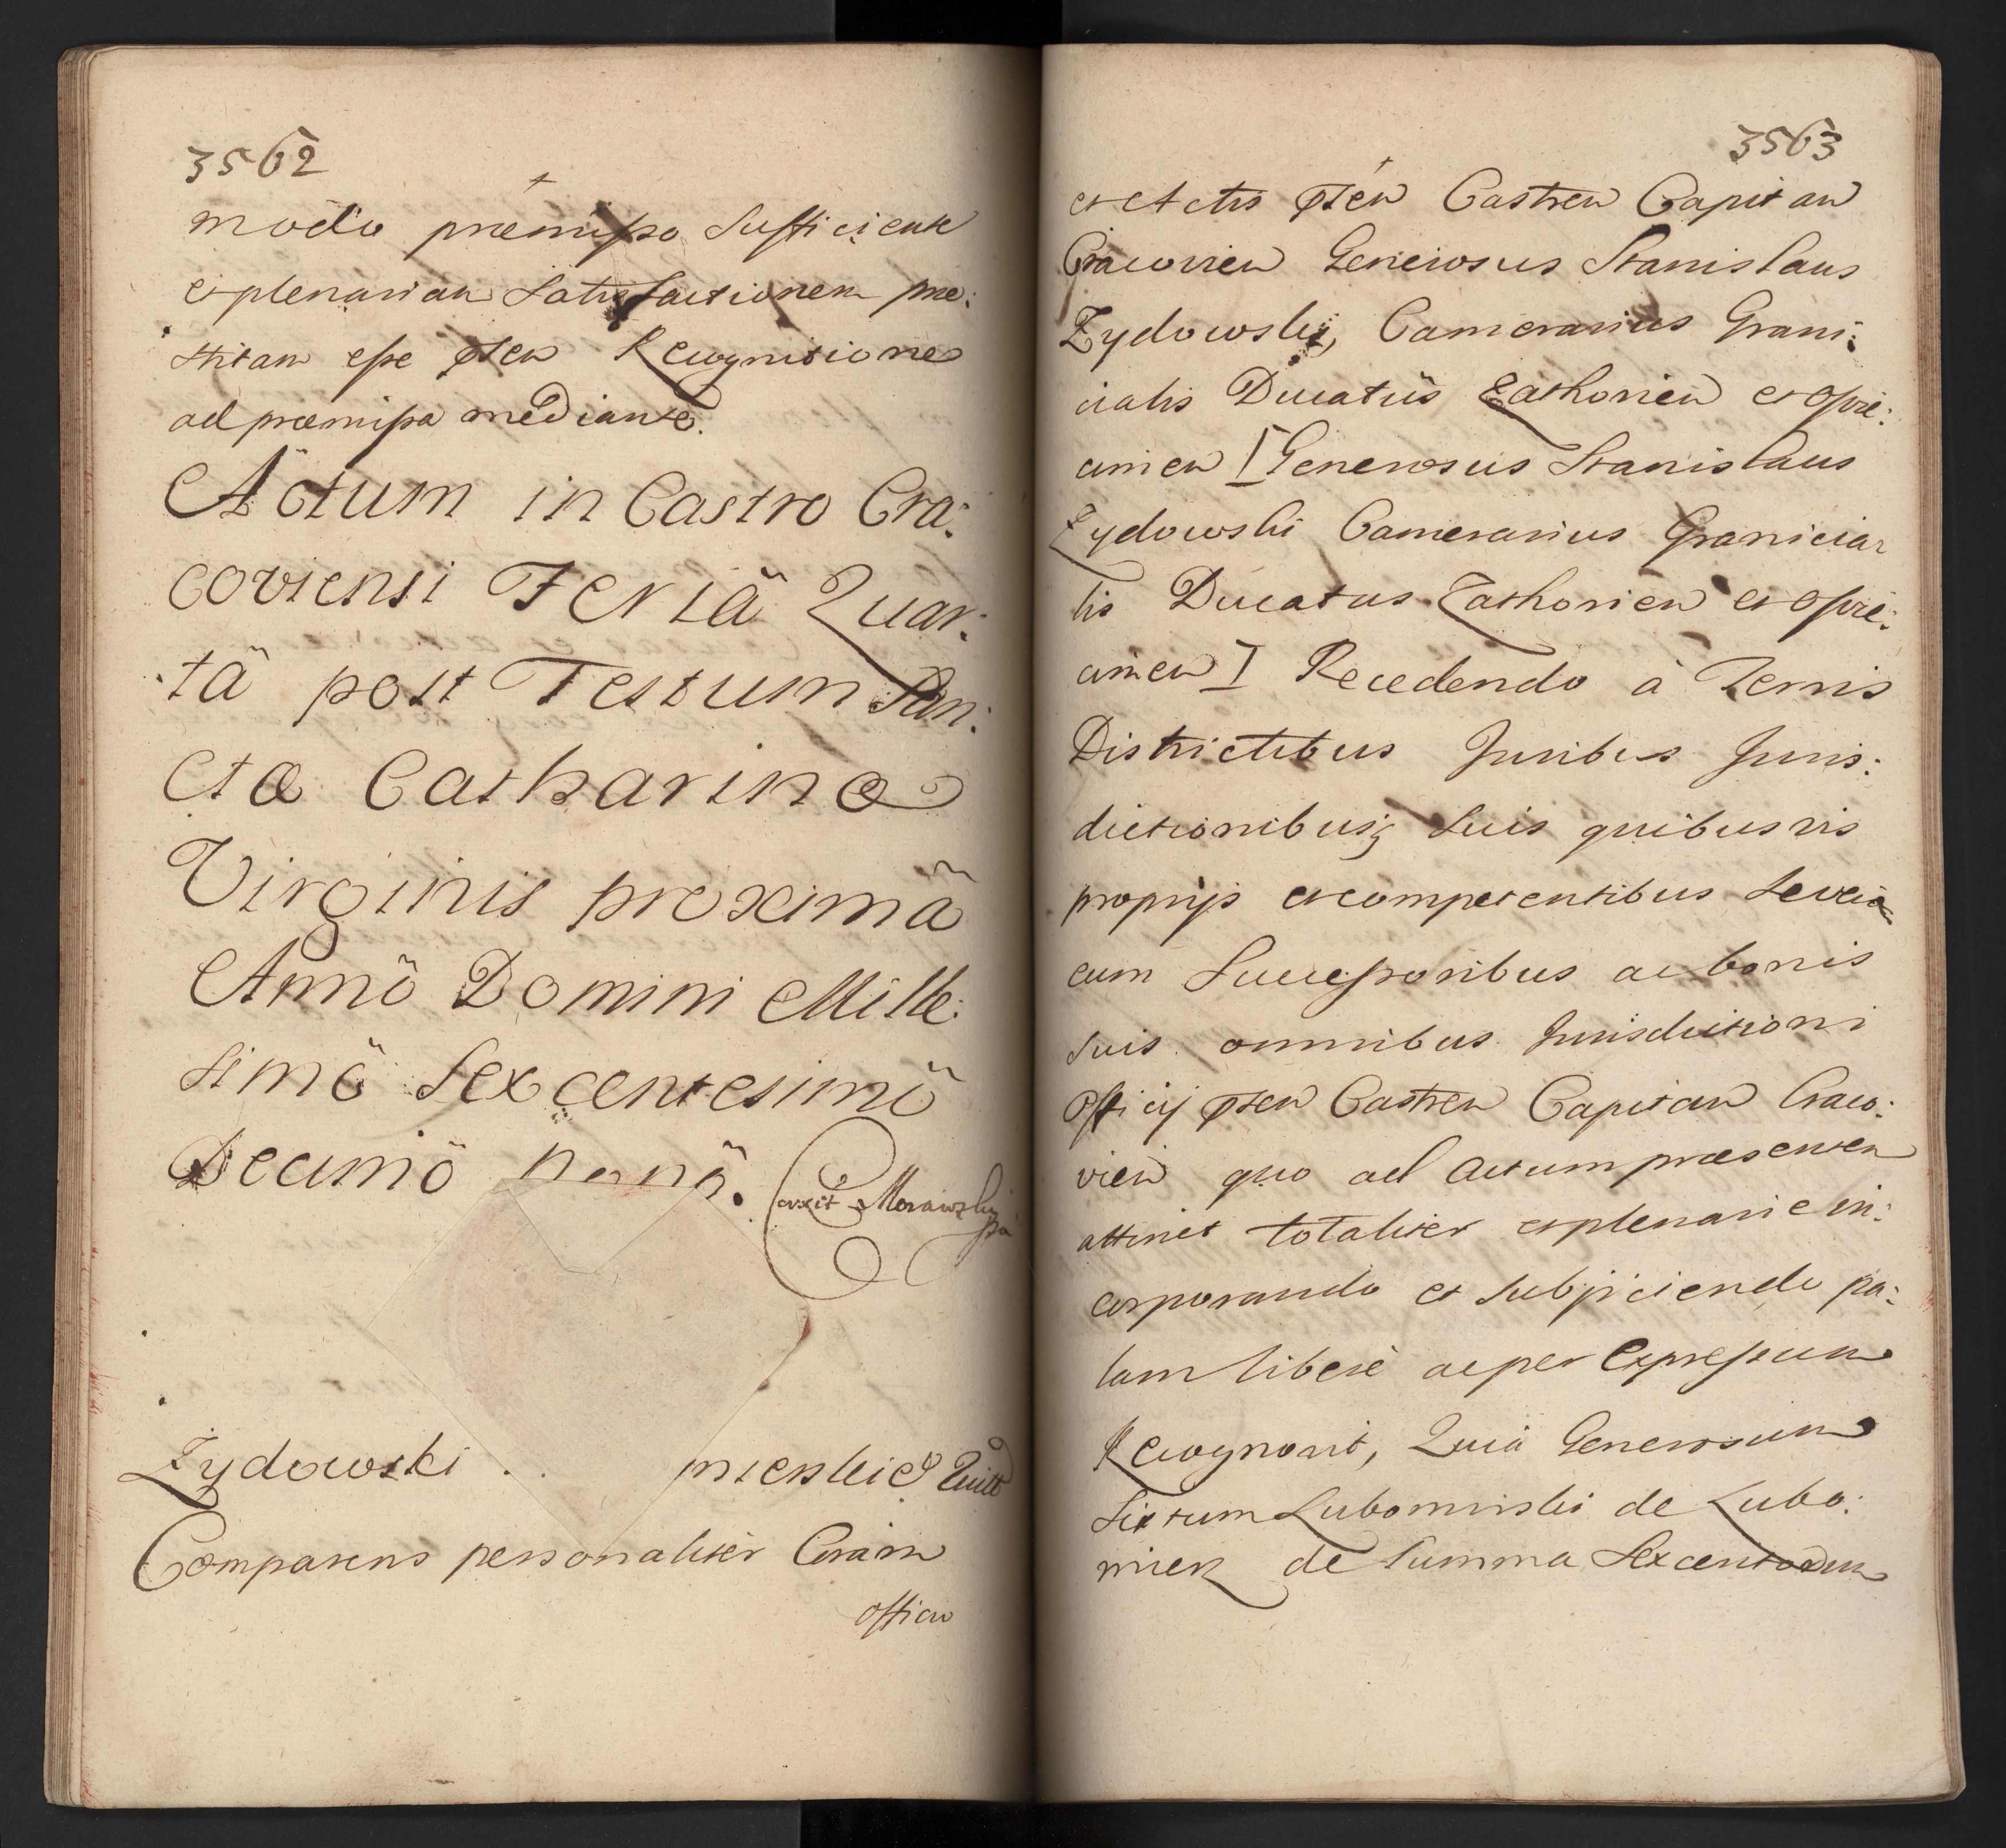 3562
modo præmisso sufficiente
et plenariam satisfactionem præ:
stitam esse pñten Recognitione
ad præmissa mediante.
Actum in Castro Cra:
coviensi Feriâ Quar:
tâ post Festum San:
ctæ Catharinæ
Virginis proximâ
Annô Domini Mille:
simô Sexcentesimô
Decimô nonô.
Morawski
Żydowski
Comparens personaliter Coram
officio
3563
et Actis pñten Castren Capitan
Cracovien Generosus Stanislaus
Zydowski, Camerarius Grani:
cialis Ducatûs Zathorien et Oswie:
cimen I Generosus Stanislaus
Zydowski Camerarius Granicia
lis Ducatus Zathorien et Oswie:
cimen I Recedendo à Terris
Districtibus Juribus Juris:
dictionibusq suis quibusvis
proprijs et competentibus seve
cum Successoribus ac bonis
suis omnibus Jurisdictioni
Officij pñten Castren Capitan Craco:
vien quo ad actum præsentem
attinet totaliter et plenarie in:
corporando et subjiciendo pa:
lam liberè ac per expressum
Recognovit, Quia Generosum
Sixtum Lubomirski de Lubo:
mierz de summa Sexcentorum